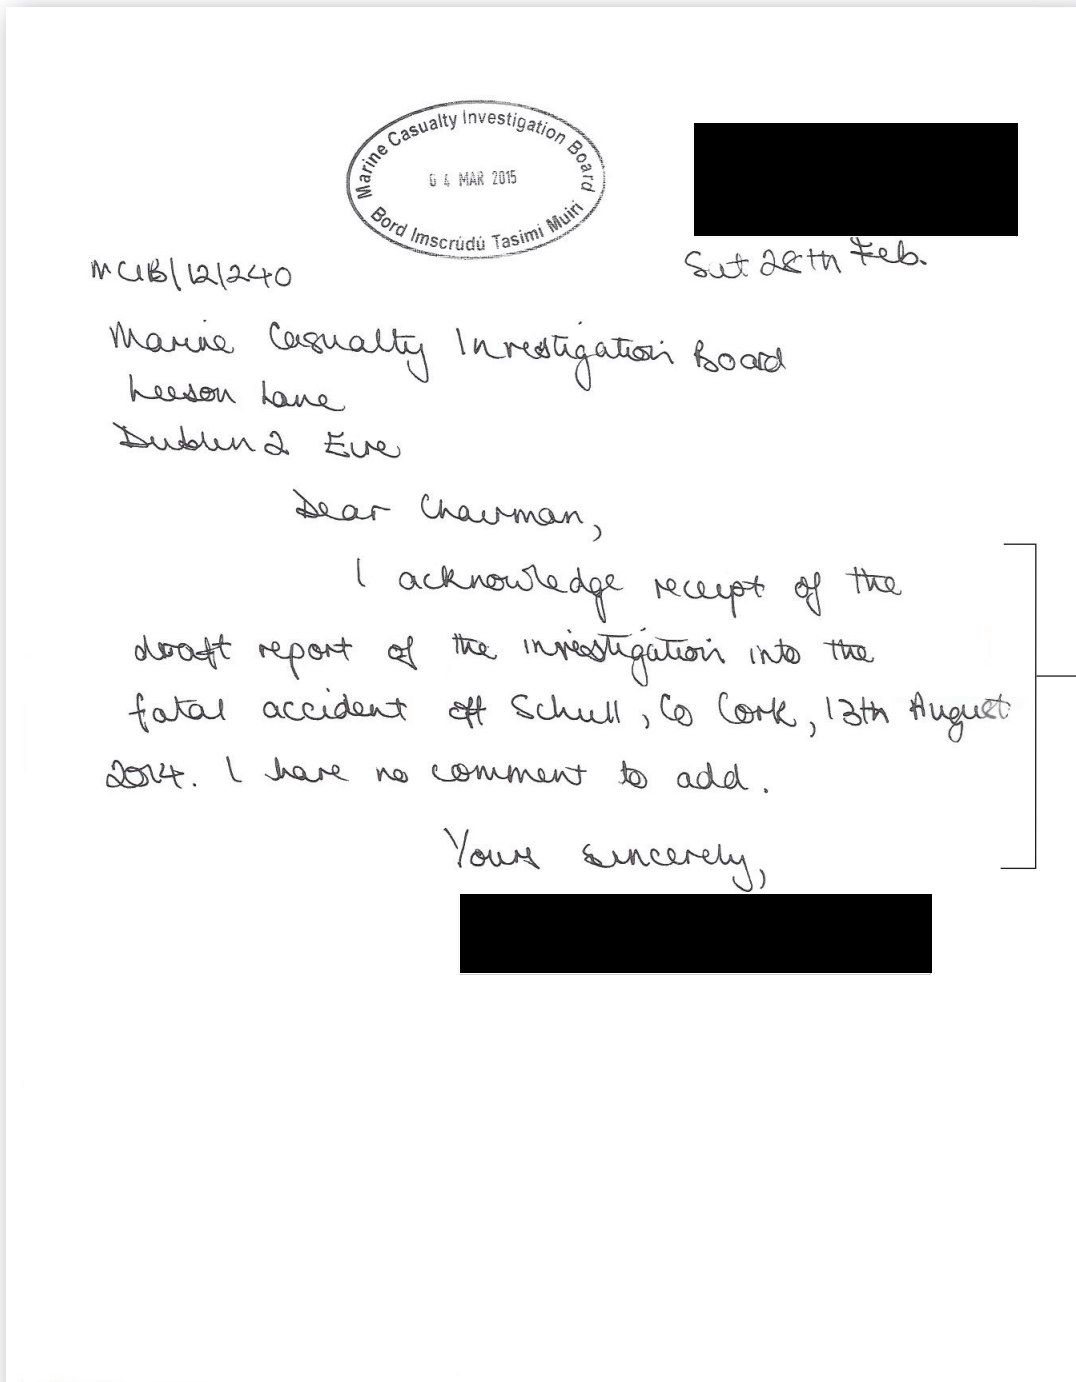 Marine Casualty Investigation Board
04 MAR 2015
Bord Imscrúdú Tasimí Muirí
MCIB/12/240
Sat 28th Feb.
Marine Casualty Investigation Board
Leeson Lane
Dublin 2 Eire
Dear Chairman,
I acknowledge receipt of the
draft report of the investigation into the
fatal accident off Schull, Co Cork, 13th August
2014. I have no comment to add.
Yours sincerely,